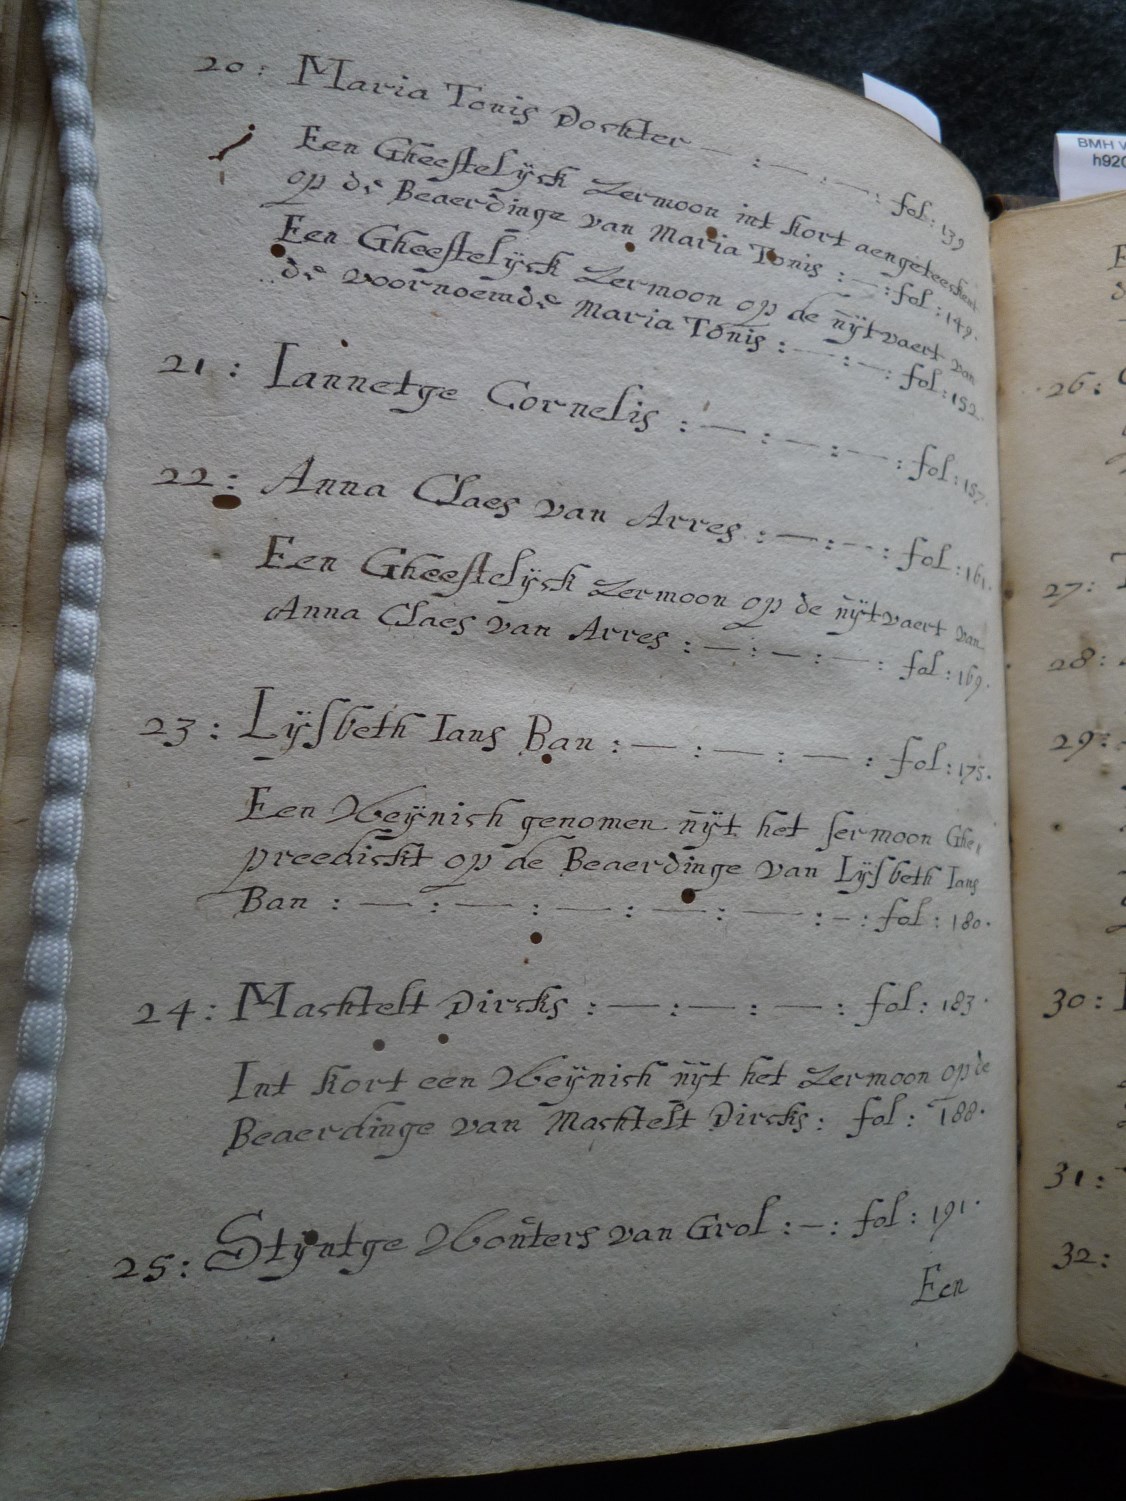 20: Maria Tonis Dochter — : — . — : fol: 139
Een Gheestelÿck Zermoon int kort aengeteeckent
op de Beaerdinge van Maria Tonis : — : fol: 149.
Een Gheestelÿck Zermoon op de ŭÿtvaert van
de voornoemde Maria Tonis : — : — : fol: 152.
21: Iannetge Cornelis : — : — : — : fol: 157.
22: Anna Claes van Arres : — : — : fol: 161.
Een Gheestelÿck Zermoon op de ŭÿtvaert van
Anna Claes van Arres : — : — : — : fol: 169.
23: Lÿsbeth Ians Ban : — : — : — : fol: 175.
Een Weÿnich genomen ŭÿt het sermoon Ghe,
preedickt op de Beaerdinge van Lÿsbeth Ians
Ban : — : — : — : — : — : – : fol: 180.
24: Machtelt Dircks : — : — : — : fol: 183.
Int kort een Weÿnich ŭÿt het Zermoon op de
Beaerdinge van Machtelt Dircks: fol: 188.
25: Stÿntge Woŭters van Grol : – : fol: 191.
Een
BMH
h920
26:
27:
28:
29:
30:
31:
32: